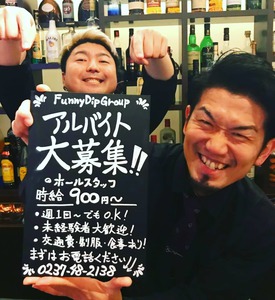 FunnyDipGroup
アルバイト
大募集!!
ホールスタッフ
時給 900円～
・週1日～でもO.K!
・未経験者大歓迎!
・交通費・制服・食事あり!
まずはお電話ください!!
0237-48-2138